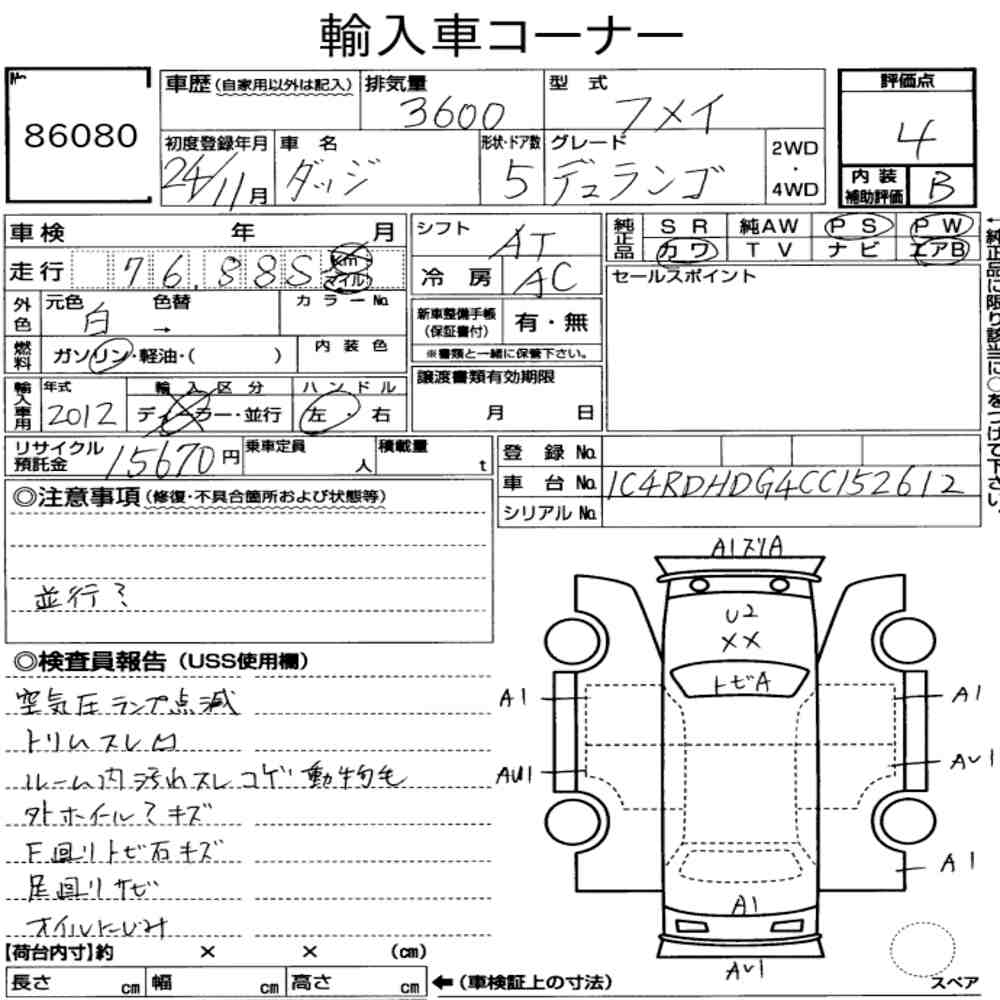 輸入車コーナー
No.
86080
車歴(自家用以外は記入)
排気量
3600
型 式
フメイ
評価点
4
初度登録年月
24/11月
車 名
ダッジ
形状・ドア数
5
グレード
デュランゴ
2WD
・
4WD
内 装
補助評価
B
車検 年 月
走行 76,885 km マイル
シフト
AT
冷 房
AC
純正品
SR 純AW PS PW
カワ TV ナビ エアB
←純正品に限り該当に○をつけて下さい。
外色
元色
白
色替
→
カラーNo.
燃料
ガソリン・軽油・( )
内 装 色
新車整備手帳
(保証書付)
有・無
※書類と一緒に保管下さい。
セールスポイント
輸入車用
年式
2012
輸 入 区 分
ディーラー・並行
ハ ン ド ル
左・右
譲渡書類有効期限
月 日
リサイクル
預託金
15670円
乗車定員
人
積載量
t
登 録 No.
車 台 No.
1C4RDHDG4CC152612
シリアル No.
◎注意事項(修復・不具合箇所および状態等)
並行?
◎検査員報告(USS使用欄)
空気圧ランプ点滅
トリムスレ凹
ルーム内汚れスレコゲ動物毛
外ホイール?キズ
下回りトビ石キズ
足回りサビ
オイルにじみ
A1スリA
U2
××
トビA
A1
A1
AU1
AU1
A1
A1
AU1
【荷台内寸】約 × × (cm)
長さ cm 幅 cm 高さ cm
←(車検証上の寸法)
スペア